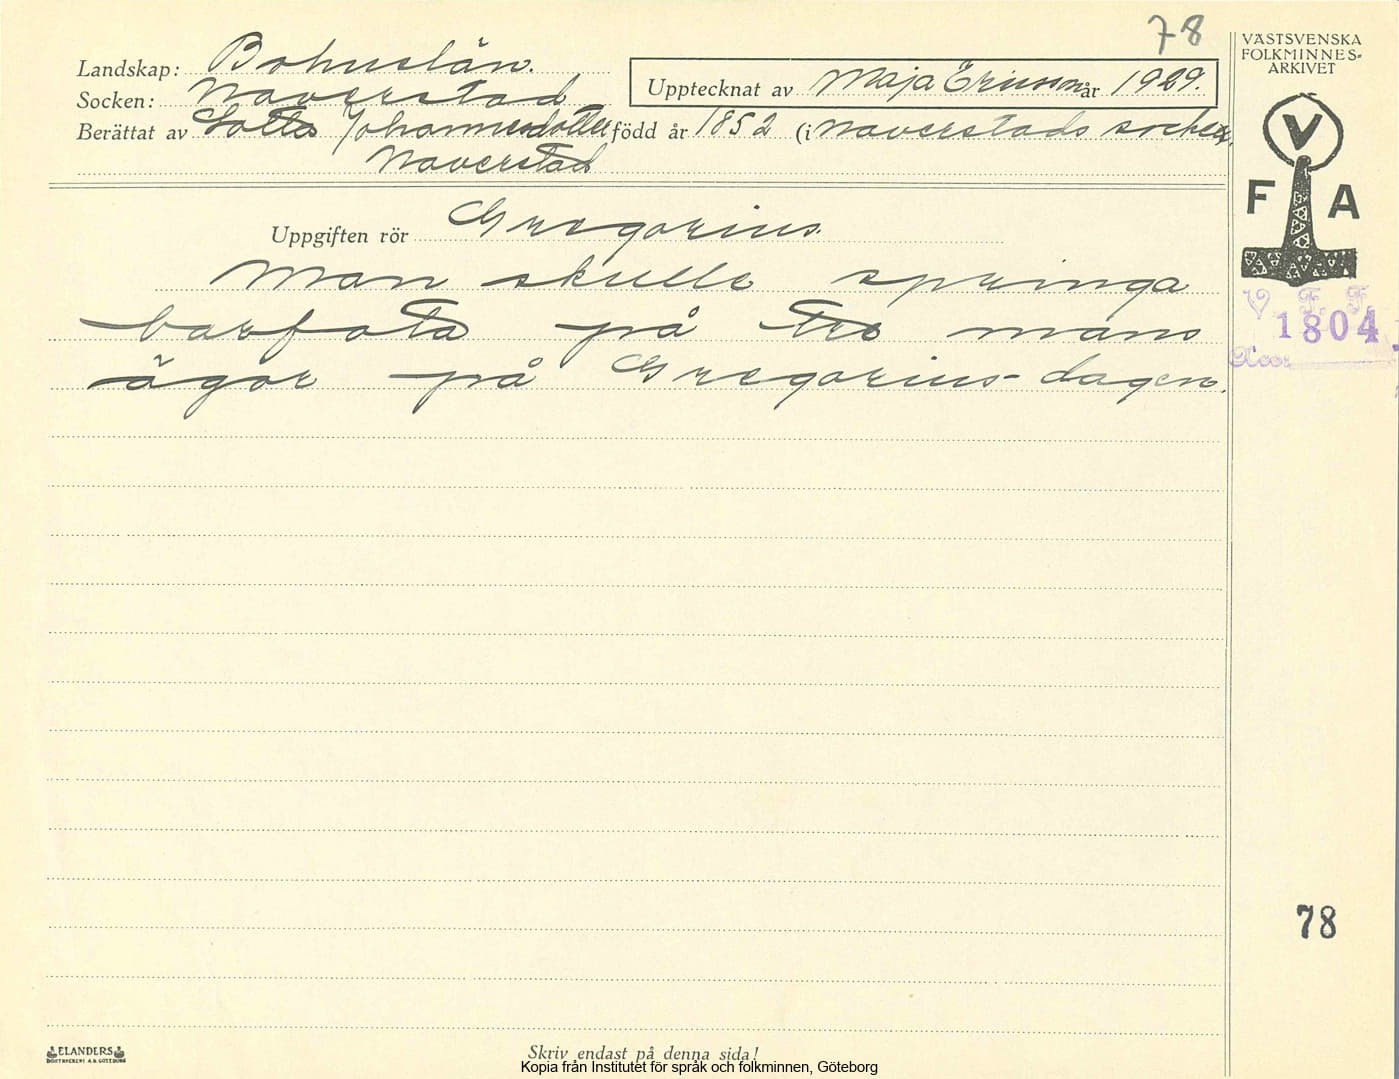 78
VÄSTSVENSKA
FOLKMINNES-
ARKIVET
Landskap: Bohuslän.
Socken: Naverstad
Upptecknat av Maja Ericsson år 1929.
Berättat av Lotta Johannesdotter född år 1852 (i Naverstads socken.
Naverstad
V
F A
Uppgiften rör Gregorius.
Man skulle springa
barfota på tre mans
ägor på Gregorius-dagen.
V. F. F.
1804
Acc.
78
ELANDERS
BOKTRYCKERI A.B. GÖTEBORG
Skriv endast på denna sida!
Kopia från Institutet för språk och folkminnen, Göteborg